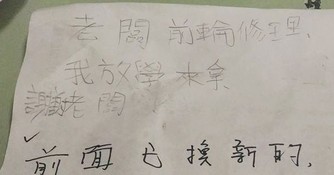 老闆 前輪修理、
我放學來拿
謝謝老闆
前面已換新的、